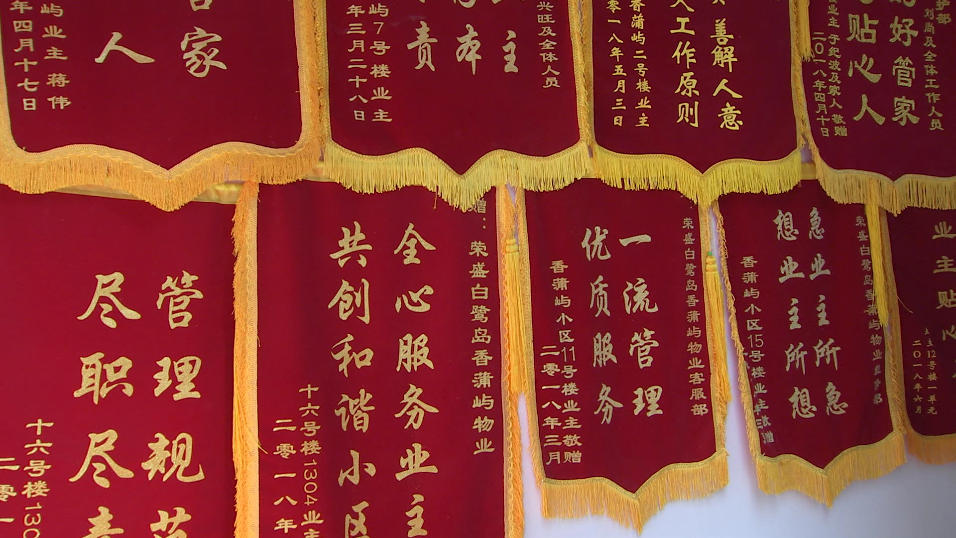 家
人
屿业主 蒋伟
年四月十七日
兴旺及全体人员
主
本
责
屿7号楼业主
年三月二十八日
善解人意
人工作原则
香蒲屿二号楼业主
二零一八年五月三日
刘尚及全体工作人员
好管家
贴心人
业主 于纪波及家人 敬赠
二〇一八年四月十日
管理规范
尽职尽责
十六号楼130
二零一
赠：荣盛白鹭岛香蒲屿物业
全心服务业主
共创和谐小区
十六号楼1304业主
二零一八年
荣盛白鹭岛香蒲屿物业客服部
一流管理
优质服务
香蒲屿小区11号楼业主敬赠
二零一八年三月
荣盛白鹭岛香蒲屿物业
急业主所急
想业主所想
香蒲屿小区15号楼业主
业主贴心
12号楼一单元
二〇一八年六月